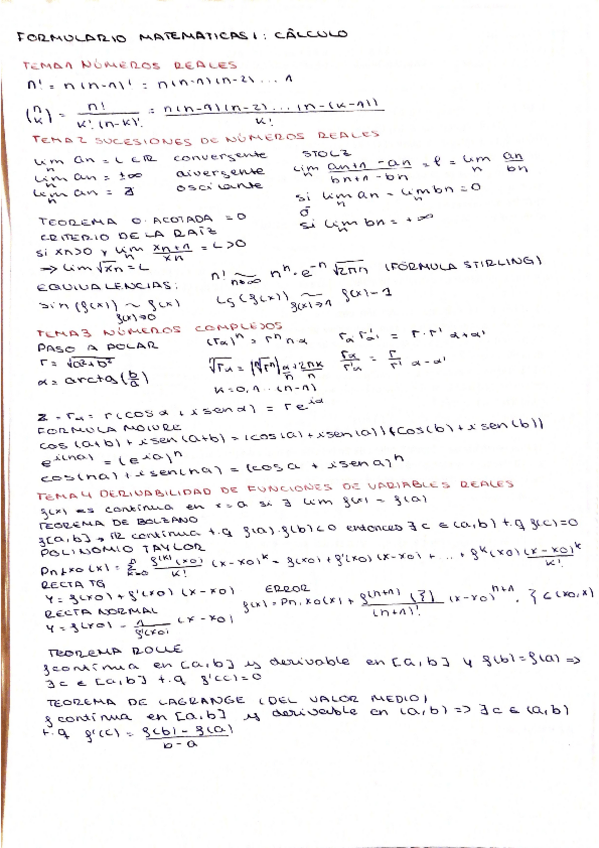 FORMULARIO MATEMATICAS I: CÁLCULO
TEMA 1 NÚMEROS REALES
n! = n(n-1)! = n(n-1)(n-2)... 1
(n k) = n! / k!(n-k)! = n(n-1)(n-2)...(n-(k-1)) / k!
TEMA 2 SUCESIONES DE NÚMEROS REALES
lim an = L ∈ R convergente
lim an = ±∞ divergente
lim an = ∄ oscilante
STOLZ
lim (an+1 - an) / (bn+1 - bn) = l = lim an / bn
si lim an = lim bn = 0
ó
si lim bn = +∞
TEOREMA 0 · ACOTADA = 0
CRITERIO DE LA RAÍZ
si xn>0 y lim xn+1 / xn = L>0
=> lim √xn = L
EQUIVALENCIAS:
n! ~ n^n · e^-n √2πn (FÓRMULA STIRLING)
n→∞
sin(f(x)) ~ f(x)
f(x)→0
Lg(f(x)) ~ f(x)-1
f(x)→1
TEMA 3 NÚMEROS COMPLEJOS
PASO A POLAR
r = √a²+b²
α = arctg(b/a)
(rα)^n = r^n n·α
n√rα = (n√r) (α+2πk)/n
k=0,1...(n-1)
rα r'α' = r·r' α+α'
rα / r'α' = r/r' α-α'
z = rα = r(cos α + i sen α) = r e^iα
FORMULA MOIVRE
cos(a+b) + i sen(a+b) = (cos(a) + i sen(a))(cos(b) + i sen(b))
e^i(na) = (e^ia)^n
cos(na) + i sen(na) = (cos a + i sen a)^n
TEMA 4 DERIVABILIDAD DE FUNCIONES DE VARIABLES REALES
f(x) es continua en x=a si ∃ lim f(x) = f(a)
TEOREMA DE BOLZANO
f[a,b] → R continua t.q f(a)·f(b)<0 entonces ∃ c ∈ (a,b) t.q f(c)=0
POLINOMIO TAYLOR
Pn,xo(x) = Σ f^(k)(xo) / k! (x-xo)^k = f(xo) + f'(xo)(x-xo) + ... + f^k(xo) (x-xo)^k / k!
RECTA TG
y = f(xo) + f'(xo)(x-xo)
RECTA NORMAL
y = f(xo) - 1/f'(xo) (x-xo)
ERROR
f(x) = Pn,xo(x) + f^(n+1)(ξ) / (n+1)! (x-xo)^n+1, ξ ∈ (xo,x)
TEOREMA ROLLE
f continua en [a,b] y derivable en [a,b] y f(b)=f(a) =>
∃ c ∈ [a,b] t.q f'(c)=0
TEOREMA DE LAGRANGE (DEL VALOR MEDIO)
f continua en [a,b] y derivable en (a,b) => ∃ c ∈ (a,b)
t.q f'(c) = f(b)-f(a) / b-a